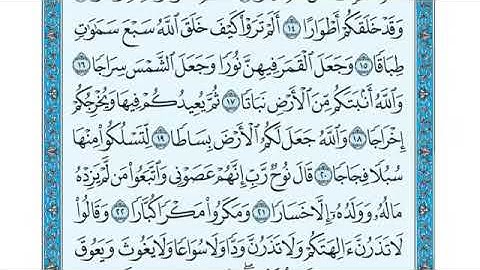 وَقَدْ خَلَقَكُمْ أَطْوَارًا ١٤ أَلَمْ تَرَوْا۟ كَيْفَ خَلَقَ ٱللَّهُ سَبْعَ سَمَٰوَٰتٍ
طِبَاقًا ١٥ وَجَعَلَ ٱلْقَمَرَ فِيهِنَّ نُورًا وَجَعَلَ ٱلشَّمْسَ سِرَاجًا ١٦
وَٱللَّهُ أَنۢبَتَكُم مِّنَ ٱلْأَرْضِ نَبَاتًا ١٧ ثُمَّ يُعِيدُكُمْ فِيهَا وَيُخْرِجُكُمْ
إِخْرَاجًا ١٨ وَٱللَّهُ جَعَلَ لَكُمُ ٱلْأَرْضَ بِسَاطًا ١٩ لِّتَسْلُكُوا۟ مِنْهَا
سُبُلًا فِجَاجًا ٢٠ قَالَ نُوحٌ رَّبِّ إِنَّهُمْ عَصَوْنِى وَٱتَّبَعُوا۟ مَن لَّمْ يَزِدْهُ
مَالُهُۥ وَوَلَدُهُۥٓ إِلَّا خَسَارًا ٢١ وَمَكَرُوا۟ مَكْرًا كُبَّارًا ٢٢ وَقَالُوا۟
لَا تَذَرُنَّ ءَالِهَتَكُمْ وَلَا تَذَرُنَّ وَدًّا وَلَا سُوَاعًا وَلَا يَغُوثَ وَيَعُوقَ